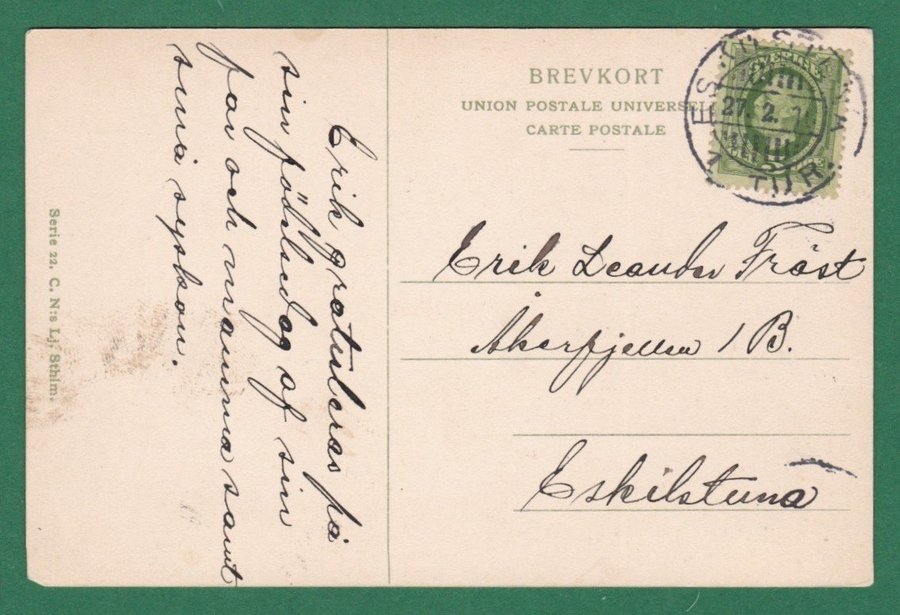 BREVKORT
UNION POSTALE UNIVERSELLE
CARTE POSTALE
SVERIGE
ESKILSTUNA
27. 2.
1 TUR.
Erik Leander Fräst
Åkerfjellsn 1 B.
Eskilstuna
Erik gratuleras på
sin födelsedag af sin
far och mamma samt
små syskon.
Serie 22. C. N:s Lj. Sthlm.